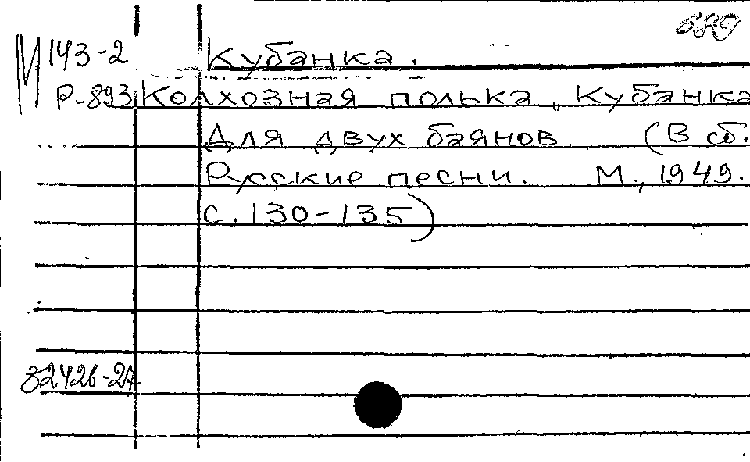 М 143-2 Кубанка.
Р-893 Колхозная полька, Кубанка
Для двух баянов (В сб.
Русские песни. М., 1949.
с. 130-135)
32426-27